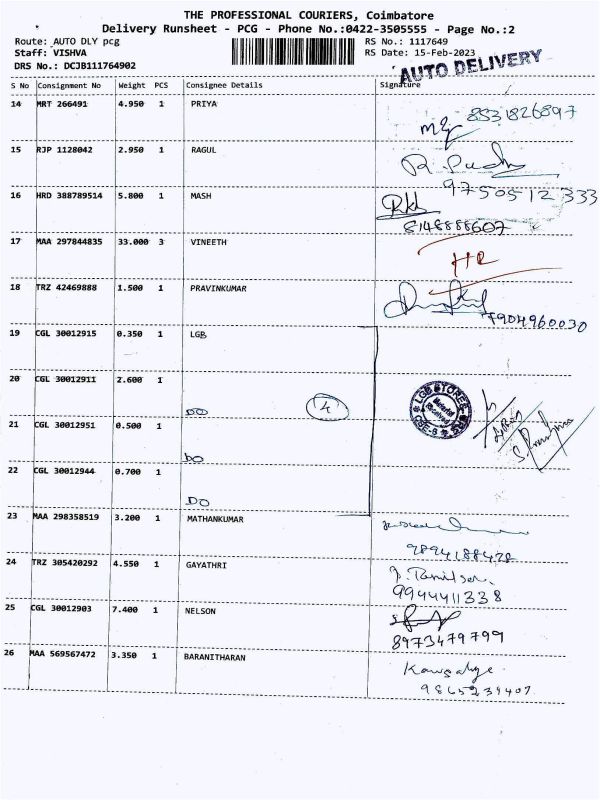 THE PROFESSIONAL COURIERS, Coimbatore
Delivery Runsheet - PCG - Phone No.:0422-3505555 - Page No.:2
Route: AUTO DLY pcg RS No.: 1117649
Staff: VISHVA RS Date: 15-Feb-2023
DRS No.: DCJB111764902
AUTO DELIVERY
S No Consignment No Weight PCS Consignee Details Signature
14 MRT 266491 4.950 1 PRIYA
8531826897
15 RJP 1128042 2.950 1 RAGUL
9750512333
16 HRD 388789514 5.800 1 MASH
8148888607
17 MAA 297844835 33.000 3 VINEETH
HR
18 TRZ 42469888 1.500 1 PRAVINKUMAR
7904960030
19 CGL 30012915 0.350 1 LGB
20 CGL 30012911 2.600 1
DO 4
LGB STORES
Material Received
21 CGL 30012951 0.500 1
DO
22 CGL 30012944 0.700 1
DO
23 MAA 298358519 3.200 1 MATHANKUMAR
9894188428
24 TRZ 305420292 4.550 1 GAYATHRI
9944411338
25 CGL 30012903 7.400 1 NELSON
8973479799
26 MAA 569567472 3.350 1 BARANITHARAN
9865234407